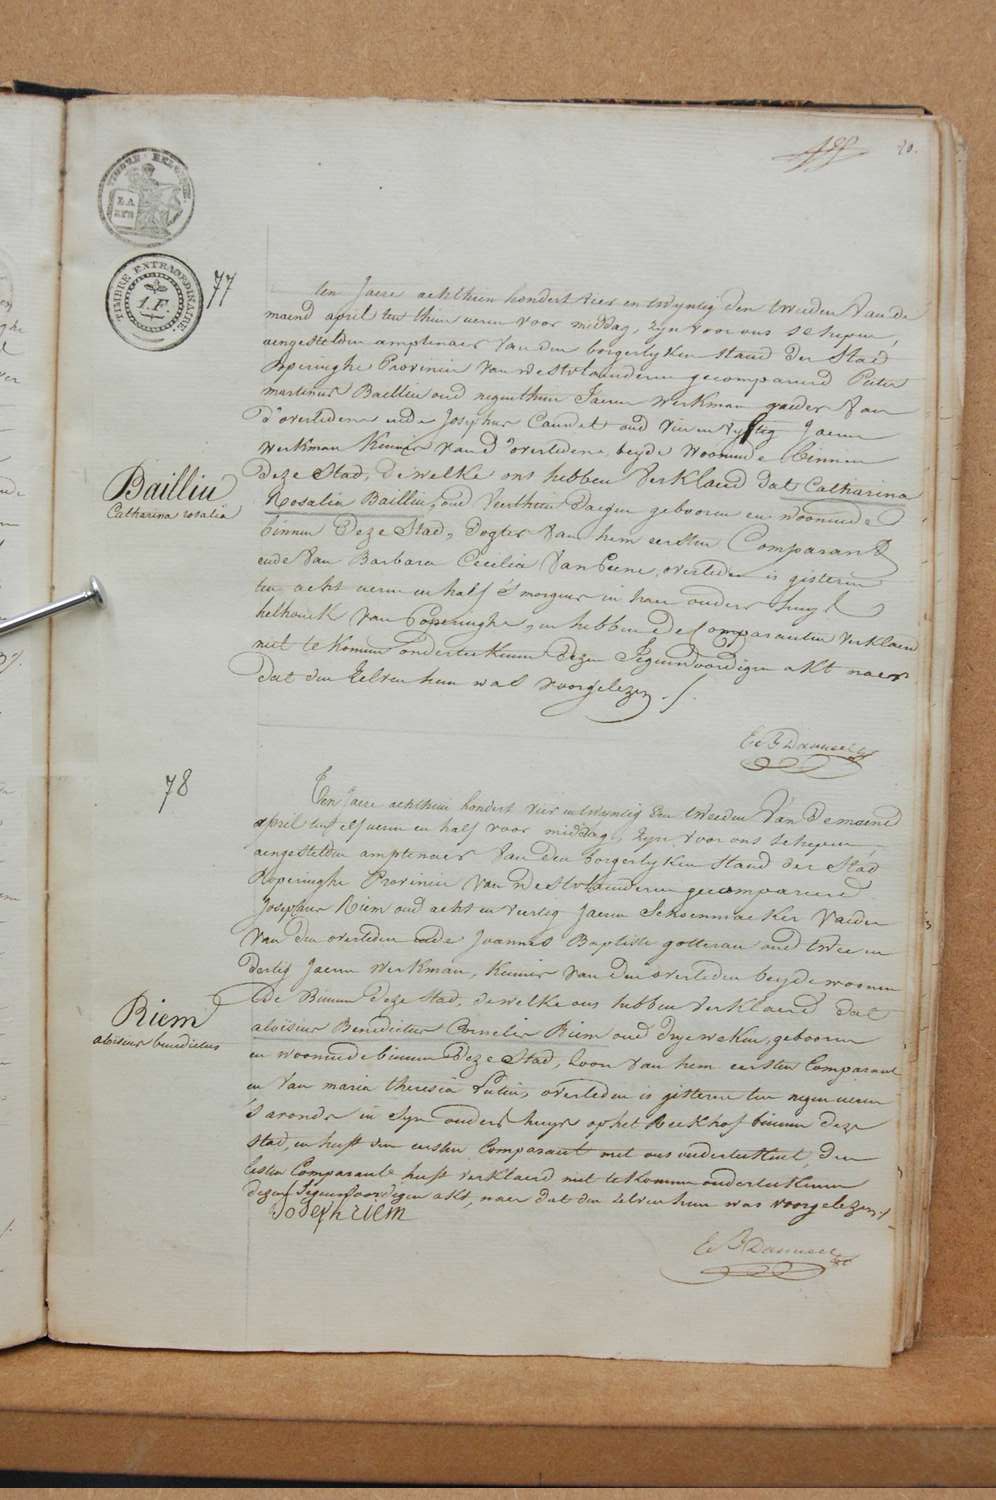 20.
TIMBRE EXTRAORDINAIRE
1.F.
77
ten Jaere achthien hondert vier en twyntig den tweeden van de
maend april ten thien ueren voor middag, zyn voor ons schepen,
aengestelden amptenaer van den borgerlyken stand der Stad
Poperinghe Provincie van westvlaenderen gecompareerd Pieter
martinus Bailliu oud negenthien Jaeren werkman vader van
d'overledene ende Josephus Candel oud vier en vyftig Jaeren
werkman Kennis van d'overledene, beyde woonende binnen
deze Stad, dewelke ons hebben verklaerd dat Catharina
Rosalia Bailliu, oud veerthien daegen gebooren en woonende
binnen deze Stad, dogter van hem eersten Comparant
ende van Barbara Cecilia VanEecne, overleden is gisteren
ten acht ueren en half s'morgens in haer ouders huys
helhoek van Poperinghe, en hebben de Comparanten verklaerd
niet te konnen onderteekenen dezen Tegenwoordigen akt naer
dat den zelven hun was voorgelezen ./.
Bailliu
Catharina rosalia
78
Ten Jaere achthien hondert vier en twyntig den tweeden van de maend
april ten elf ueren en half voor middag, zyn voor ons schepen,
aengestelden amptenaer van den borgerlyken stand der Stad
Poperinghe Provincie van Westvlaenderen gecompareerd
Josephus Riem oud acht en veertig Jaeren Schoenmaeker vader
van den overleden ende Joannes Baptiste gotteran oud twee en
dertig Jaeren werkman, kennis van den overleden beyde woonen
de Binnen deze stad, dewelke ons hebben verklaerd dat
aloisius Benedictus Cornelis Riem oud drye weken, gebooren
en woonende binnen deze Stad, zoon van hem eersten Comparant
en van maria theresia, overleden is gisteren ten negen ueren
's avonds in zyn ouders huys op het Reekhof binnen deze
stad, en heeft den eersten Comparant met ons onderteekent, den
lesten Comparant heeft verklaerd niet te konnen onderteekenen
dezen Tegenwoordigen akt, naer dat den zelven hun was voorgelezen ./.
Riem
aloisius benedictus
Joseph riem